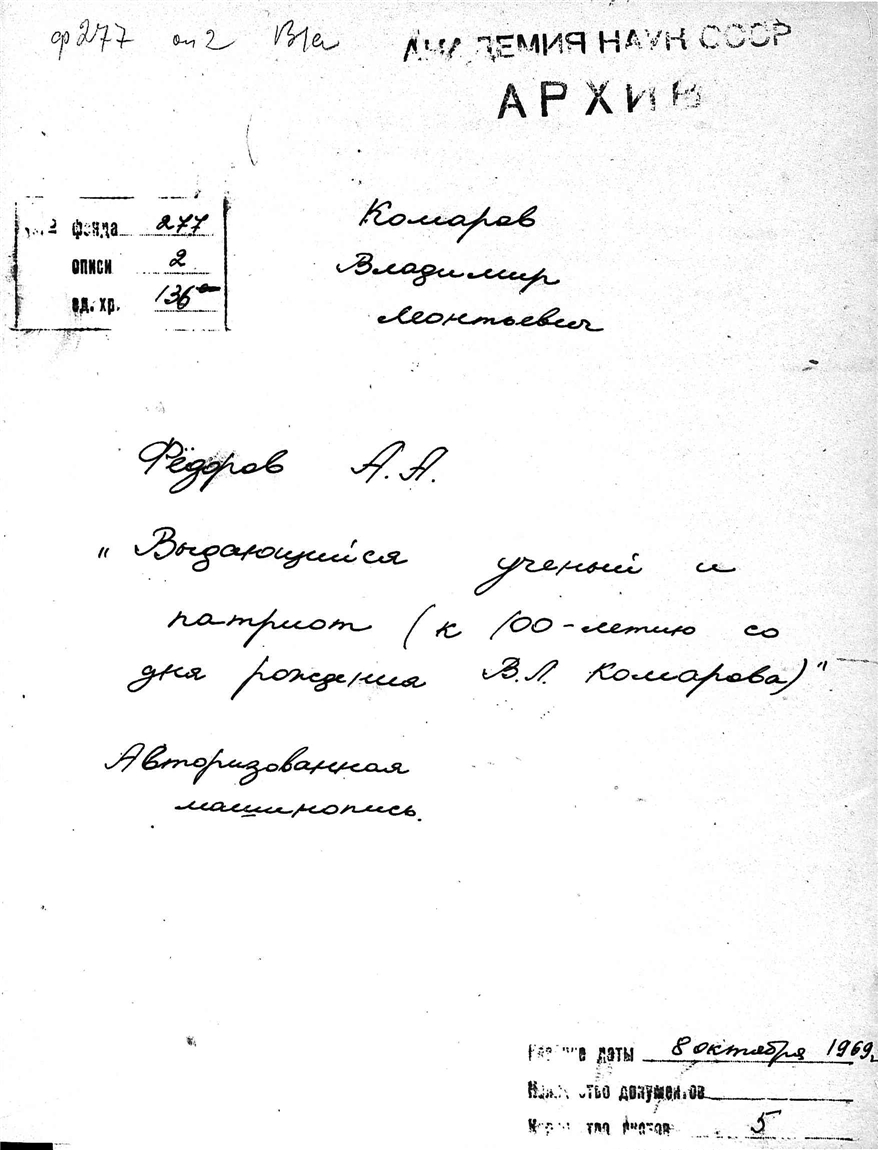 ф277 оп 2
АКАДЕМИЯ НАУК СССР
АРХИВ
№ фонда 277
описи 2
ед. хр. 136
Комаров
Владимир
Леонтьевич
Фёдоров А.А.
"Выдающийся ученый и
патриот (к 100-летию со
дня рождения В.Л. Комарова)"
Авторизованная
машинопись.
даты 8 октября 1969г.
Количество документов
Количество листов 5